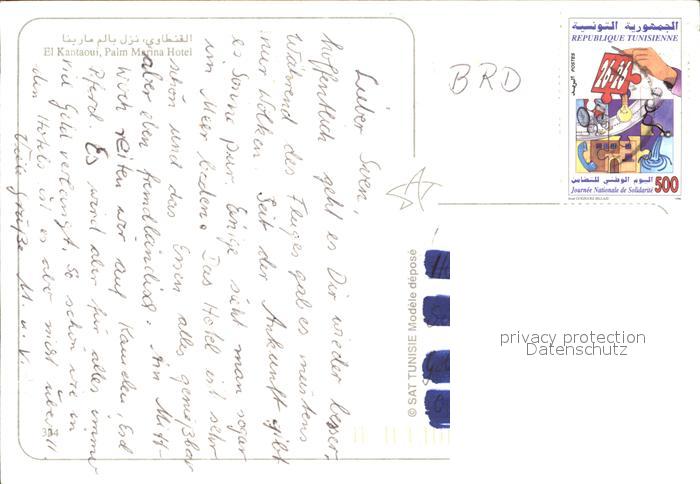 القنطاوي، نزل بالم مارينا
El Kantaoui, Palm Marina Hotel
Lieber Sven,
hoffentlich geht es Dir wieder besser.
Während des Fluges gab es meistens
nur Wolken. Seit der Ankunft gibt
es Sonne pur. Einige sieht man sogar
im Meer baden. Das Hotel ist sehr
schön und das Essen alles genießbar
aber eben fremdländisch. Am Mitt-
woch reiten wir auf Kamelen, Esel
Pferd. Es wird aber für alles immer
viel Geld verlangt. So schön wie in
den Hotels ist es aber nicht überall.
Viele Grüße M. u. V.
384
BRD
© SAT TUNISIE Modèle déposé
الجمهورية التونسية
REPUBLIQUE TUNISIENNE
POSTES
البريد
26-26
اليوم الوطني للتضامن
Journée Nationale de Solidarité
500
privacy protection
Datenschutz